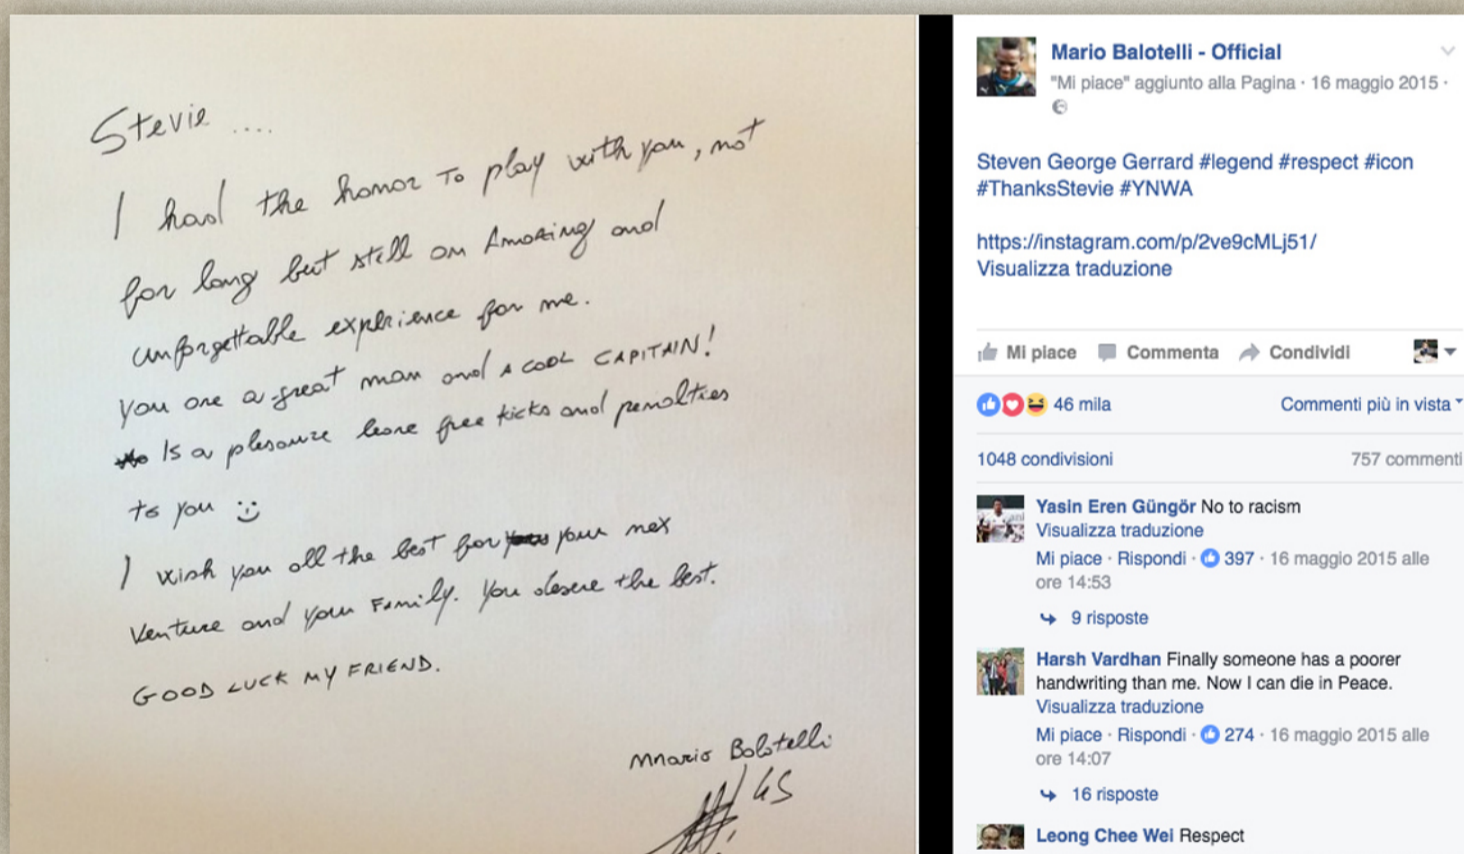 Stevie ....
I had the honor to play with you, not
for long but still an Amazing and
unforgettable experience for me.
You are a great man and a cool CAPITAIN!
Is a pleasure leave free kicks and penalties
to you :)
I wish you all the best for your nex
venture and your Family. You deserve the best.
GOOD LUCK MY FRIEND.
Mario Balotelli
45
Mario Balotelli - Official
"Mi piace" aggiunto alla Pagina · 16 maggio 2015 ·
Steven George Gerrard #legend #respect #icon
#ThanksStevie #YNWA
https://instagram.com/p/2ve9cMLj51/
Visualizza traduzione
Mi piace Commenta Condividi
46 mila Commenti più in vista
1048 condivisioni 757 commenti
Yasin Eren Güngör No to racism
Visualizza traduzione
Mi piace · Rispondi · 397 · 16 maggio 2015 alle
ore 14:53
9 risposte
Harsh Vardhan Finally someone has a poorer
handwriting than me. Now I can die in Peace.
Visualizza traduzione
Mi piace · Rispondi · 274 · 16 maggio 2015 alle
ore 14:07
16 risposte
Leong Chee Wei Respect